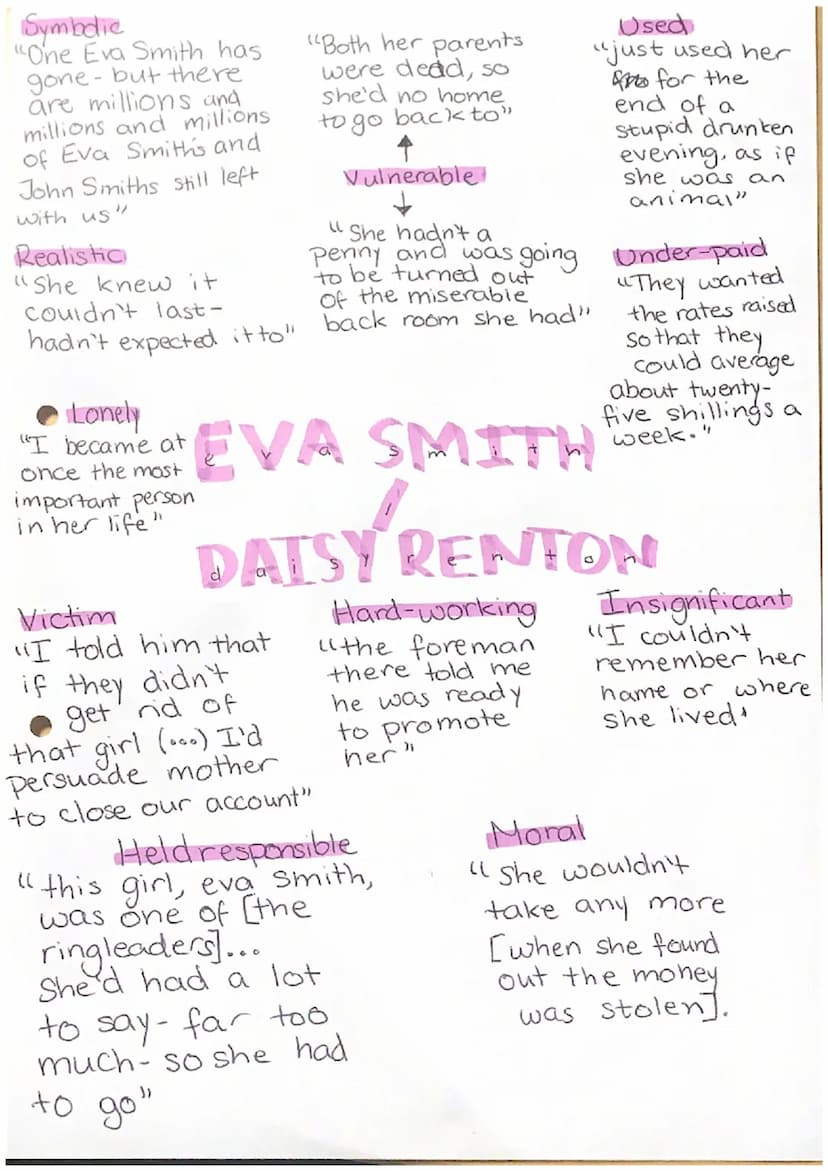 Symbolic
"One Eva Smith has
gone - but there
are millions and
millions and millions
of Eva Smith's and
John Smiths still left
with us"
"Both her parents
were dead, so
she'd no home
to go back to"
Vulnerable
"She hadn't a
penny and was going
to be turned out
of the miserable
back room she had"
Used
"just used her
for the
end of a
stupid drunken
evening, as if
she was an
animal"
Realistic
"She knew it
couldn't last-
hadn't expected it to"
Under-paid
"They wanted
the rates raised
so that they
could average
about twenty-
five shillings a
week."
Lonely
"I became at
once the most
important person
in her life"
EVA SMITH
eva smith
/
DAISY RENTON
daisy renton
Victim
"I told him that
if they didn't
get rid of
that girl (...) I'd
persuade mother
to close our account"
Hard-working
"the foreman
there told me
he was ready
to promote
her"
Insignificant
"I couldn't
remember her
name or where
she lived'
Held responsible
"this girl, eva smith,
was one of [the
ringleaders]...
She'd had a lot
to say- far too
much- so she had
to go"
Moral
"She wouldn't
take any more
[when she found
out the money
was stolen].